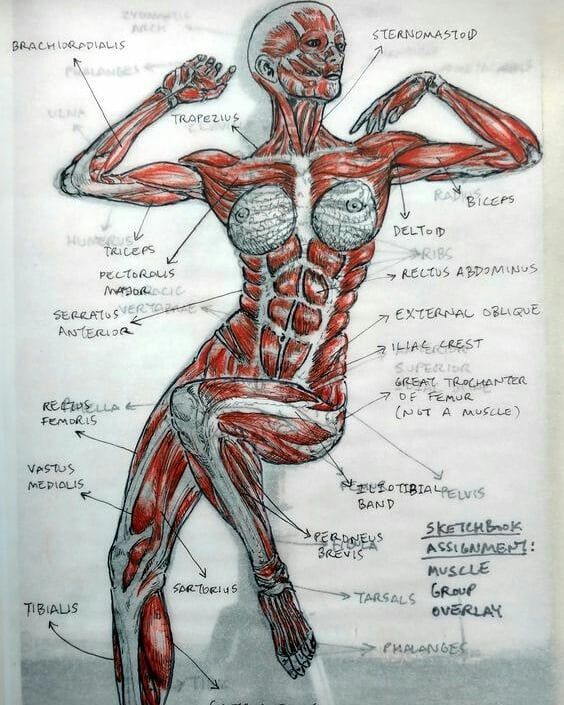 ZYGOMATIC
ARCH
STERNOMASTOID
BRACHIORADIALIS
PHALANGES
TRAPEZIUS
BICEPS
DELTOID
HUMERUS
TRICEPS
RIBS
PECTORALIS
MAJOR
RECTUS ABDOMINUS
SERRATUS
ANTERIOR
EXTERNAL OBLIQUE
ILIAC CREST
SUPERIOR
GREAT TROCHANTER
OF FEMUR
(NOT A MUSCLE)
RECTUS
FEMORIS
VASTUS
MEDIALIS
ILIOTIBIAL
BAND
PELVIS
PERONEUS
BREVIS
SKETCHBOOK
ASSIGNMENT:
MUSCLE
GROUP
OVERLAY
SARTORIUS
TARSALS
TIBIALIS
PHALANGES